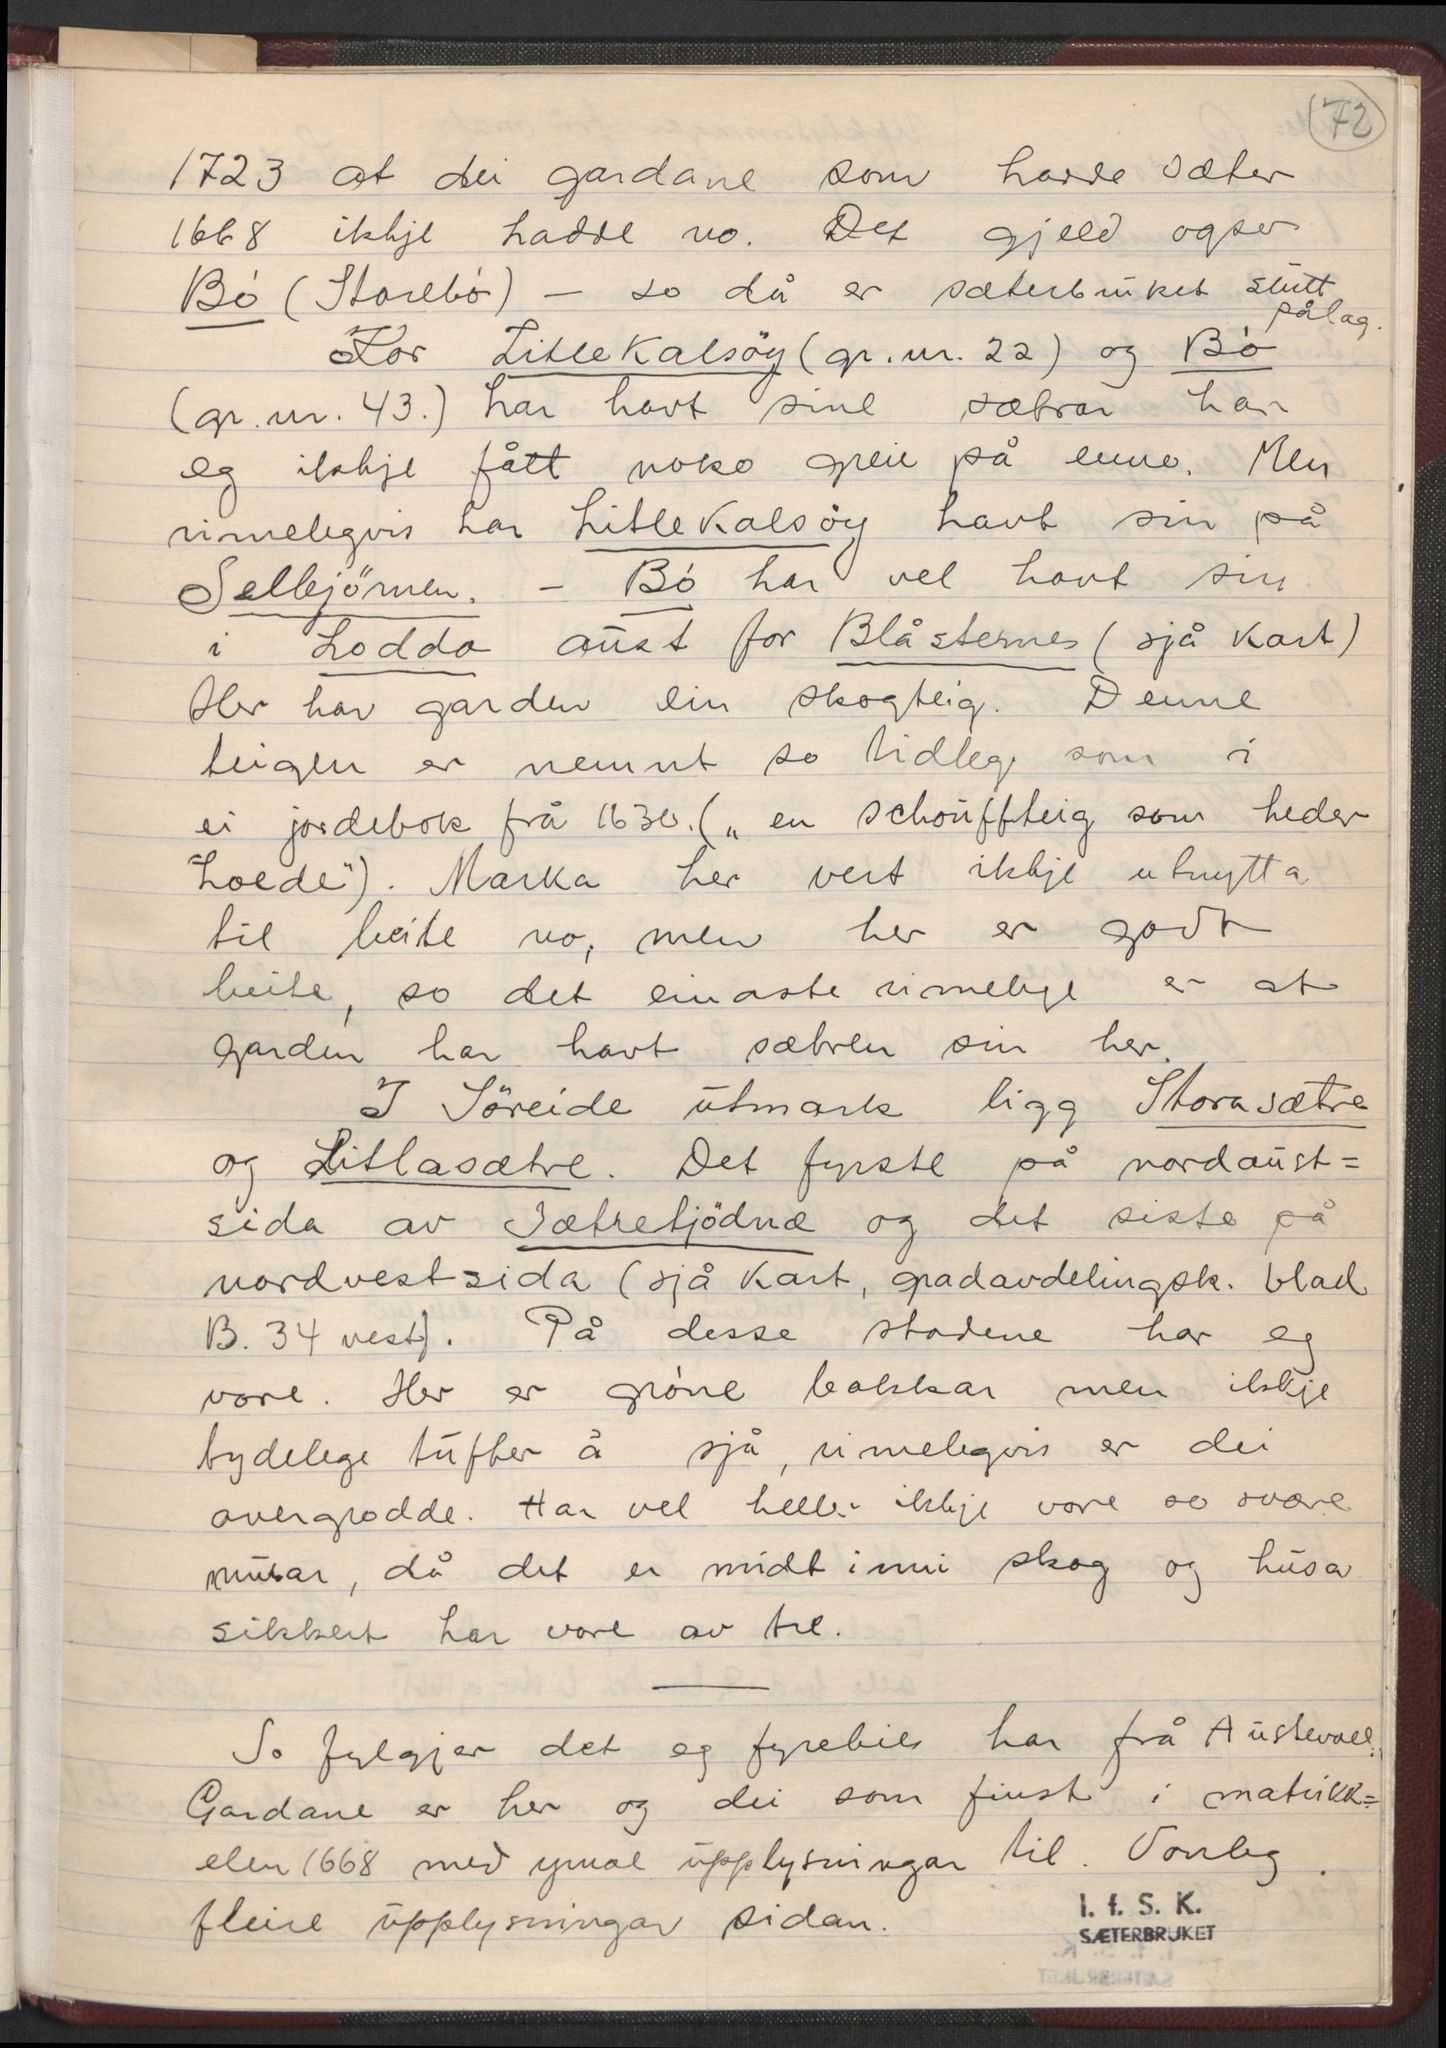 (72)
1723 at dei gardane som hadde sæter
1668 ikkje hadde no. Det gjeld ogso
Bö (Storebö) – so då er sæterbruket slutt
pålag.
Kor Litle Kalsöy (gr. nr. 22) og Bö
(gr. nr. 43.) har havt sine sætrar har
eg ikkje fått noko greie på enno. Men
rimelegvis har Litle Kalsöy havt sin på
Selbjörnen. – Bö har vel havt sin
i Lodda aust for Blåsternes (sjå kart)
Her har garden ein skogteig. Denne
teigen er nemnt so tidleg som i
ei jordebok frå 1630. („en schouffteig som heder
"Loede"). Marka her vert ikkje utnytta
til beite no, men her er godt
beite, so det einaste rimelege er at
garden har havt sætren sin her.
I Söreide utmark ligg Storasætre
og Litlasætre. Det fyrste på nordaust=
sida av Sætretjödnæ og det siste på
nordvestsida (sjå kart, gradavdelingsk. blad
B. 34 vest). På desse stadene har eg
vore. Her er gröne bakkar men ikkje
tydelege tufter å sjå, rimelegvis er dei
overgrodde. Har vel heller ikkje vore so svære
murar, då det er midt inni skog og husa
sikkert har vore av tre.
So fylgjer det eg fyrebils har frå Austevoll.
Gardane er her og dei som finst i matrikk=
elen 1668 med ymse upplysningar til. Vonleg
fleire upplysningar sidan.
I. f. S. K.
SÆTERBRUKET